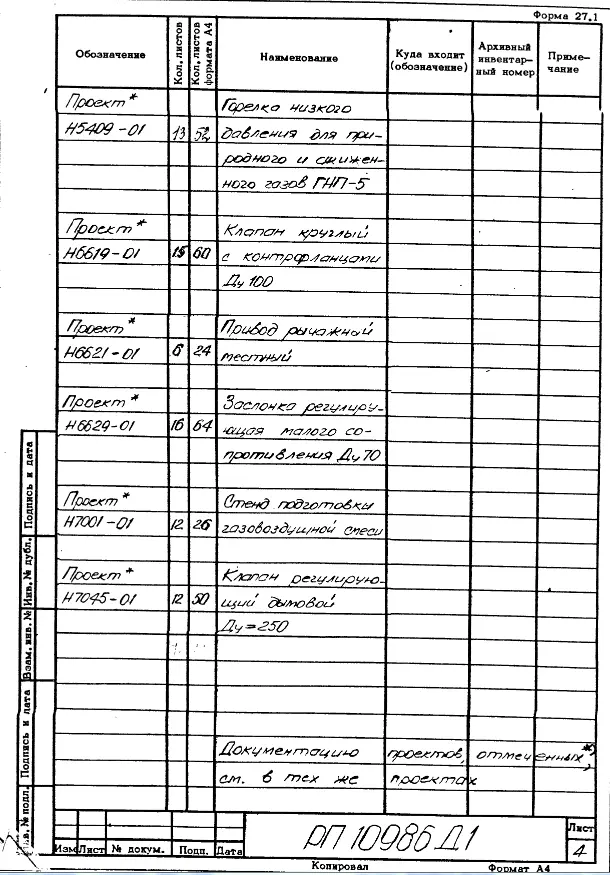 Форма 27.1
Обозначение Кол. листов Кол. листов формата А4 Наименование Куда входит (обозначение) Архивный инвентарный номер Примечание
Проект* Горелка низкого
Н5409-01 13 52 давления для при-
родного и сжижен-
ного газов ГНП-5
Проект* Клапан круглый
Н6619-01 15 60 с контрфланцами
Ду 100
Проект* Привод рычажный
Н6621-01 6 24 местный
Проект* Заслонка регулиру-
Н6629-01 16 64 ющая малого со-
противления Ду 70
Проект* Стенд подготовки
Н7001-01 12 26 газовоздушной смеси
Проект* Клапан регулирую-
Н7045-01 12 50 щий дымовой
Ду=250
Документацию проектов, отмеченных *)
см. в тех же проектах
Подпись и дата
Инв.№ дубл.
Взам. инв. №
Подпись и дата
Инв.№ подл.
Изм Лист № докум. Подп. Дата
РП 10986 Д1
Лист
4
Копировал Формат А4